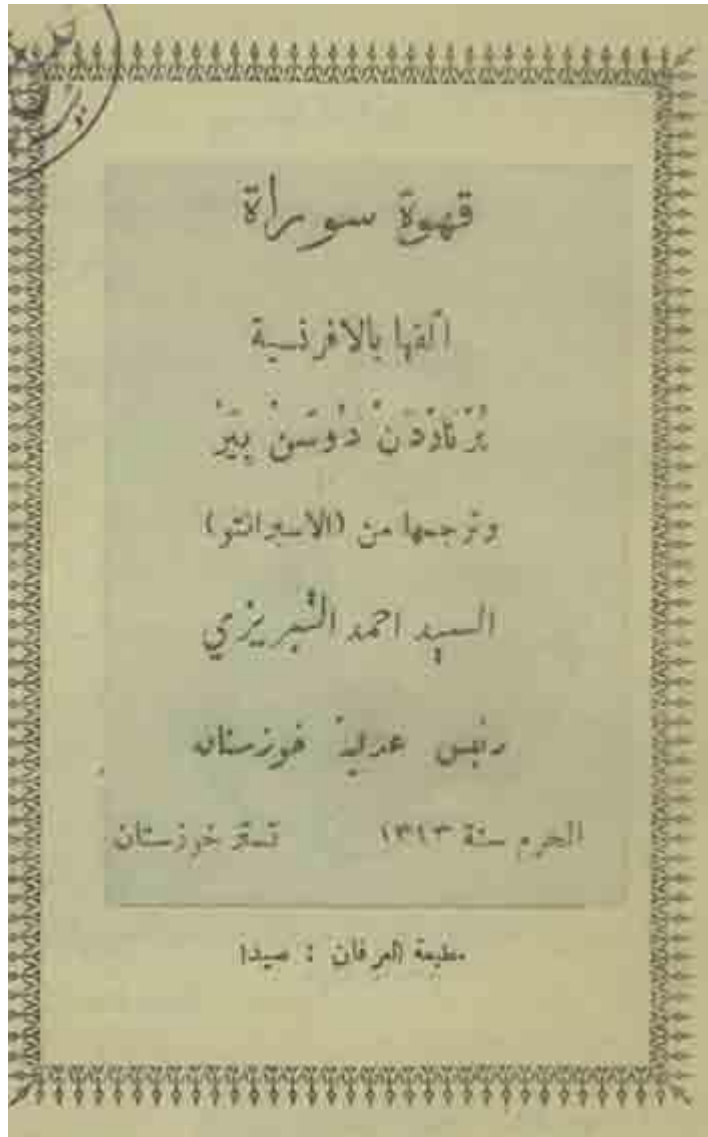 قهوة سورأة
الفها بالافرنسية
بُرْنَارْدَنْ دُوسَنْ پيَرْ
وترجمها من (الاسپرانتو)
السيد احمد التبريزي
رئيس عدلية خوزستان
المحرم سنة ١٣٤٣ تستر خوزستان
مطبعة العرفان : صيدا